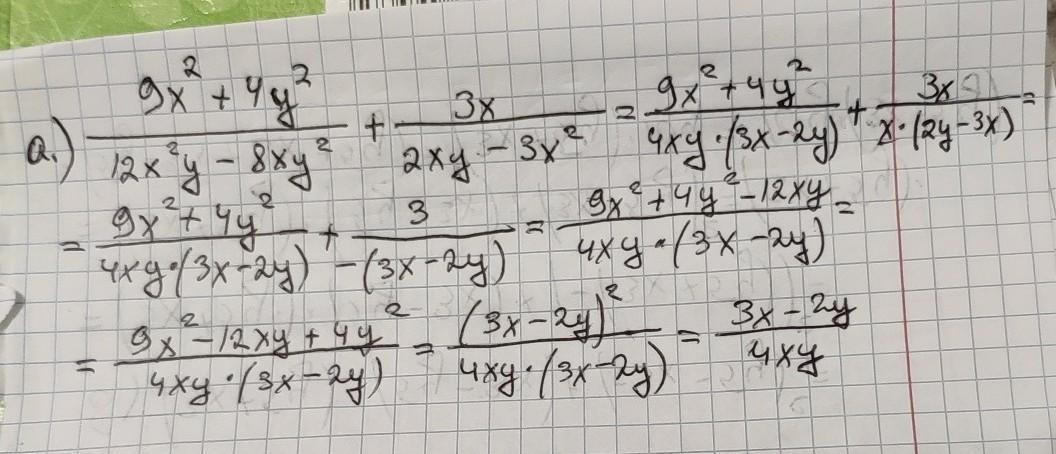 a.) (9x² + 4y²)/(12x²y - 8xy²) + 3x/(2xy - 3x²) = (9x² + 4y²)/(4xy·(3x - 2y)) + 3x/(x·(2y - 3x)) =
= (9x² + 4y²)/(4xy·(3x - 2y)) + 3/(-(3x - 2y)) = (9x² + 4y² - 12xy)/(4xy·(3x - 2y)) =
= (9x² - 12xy + 4y²)/(4xy·(3x - 2y)) = (3x - 2y)²/(4xy·(3x - 2y)) = (3x - 2y)/(4xy)